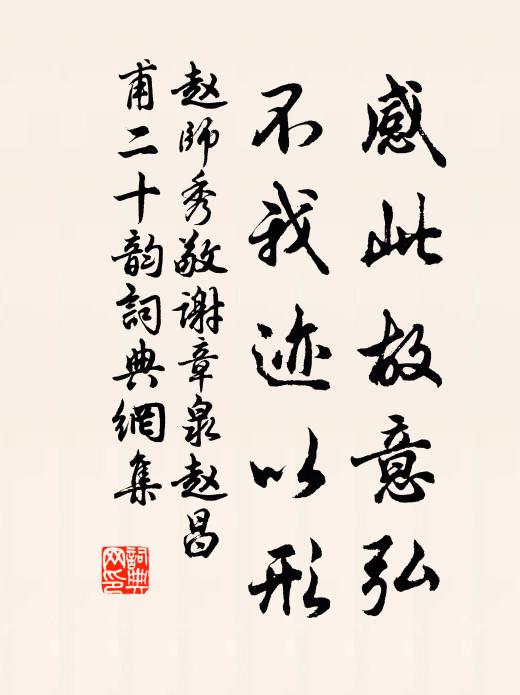 感此故意弘
不我迹以形
赵師秀敬谢章泉赵昌
甫二十韵詞典網集
詞典网印